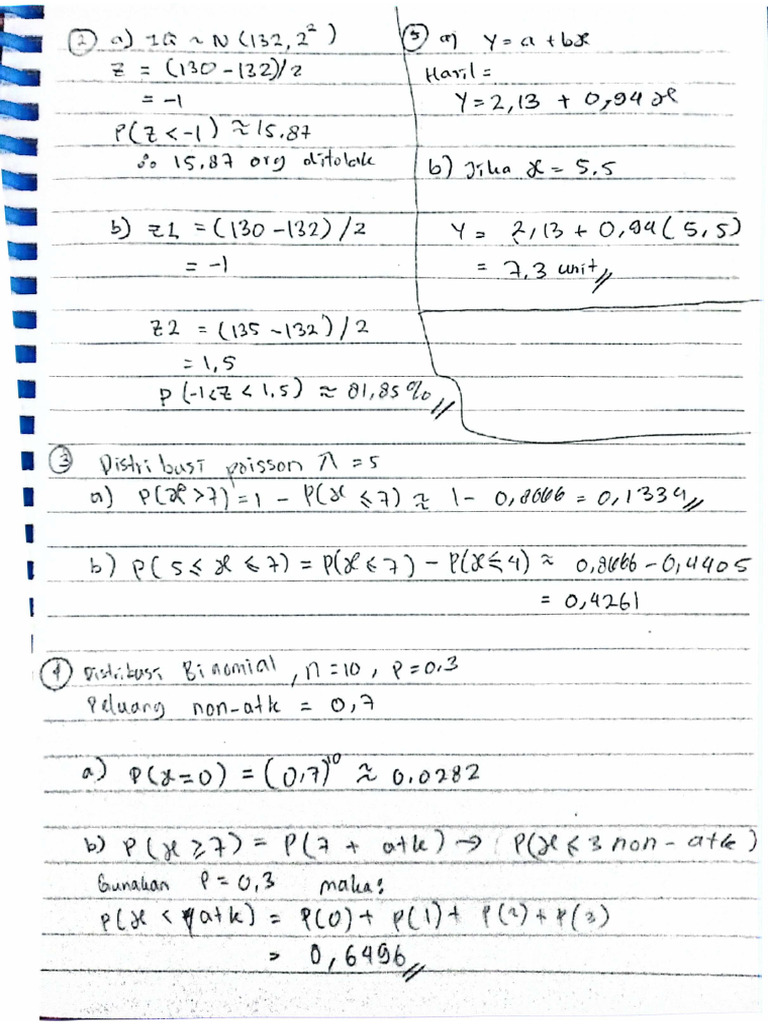 2 a) IQ ~ N (132, 2²)
Z = (130 - 132)/2
= -1
P(Z < -1) ≈ 15,87
∴ 15,87 org ditolak
b) Z1 = (130 - 132) / 2
= -1
Z2 = (135 - 132) / 2
= 1,5
P (-1 < Z < 1.5) ≈ 81,85 %
5 a) Y = a + bx
Hasil =
Y = 2,13 + 0,94 x
b) Jika x = 5.5
Y = 2,13 + 0,94 ( 5,5)
= 7,3 unit
3 Distribusi poisson λ = 5
a) P(x > 7) = 1 - P(x ≤ 7) ≈ 1 - 0,8666 = 0,1334
b) P( 5 ≤ x ≤ 7) = P(x ≤ 7) - P(x ≤ 4) ≈ 0,8666 - 0,4405
= 0,4261
4 Distribusi Binomial, n = 10, P = 0.3
Peluang non-atk = 0,7
a) P(x = 0) = (0,7)¹⁰ ≈ 0.0282
b) P (x ≥ 7) = P(7 + atk) → P(x ≤ 3 non - atk)
Gunakan P = 0,3 maka:
P(x < 4 atk) = P(0) + P(1) + P(2) + P(3)
= 0,6496